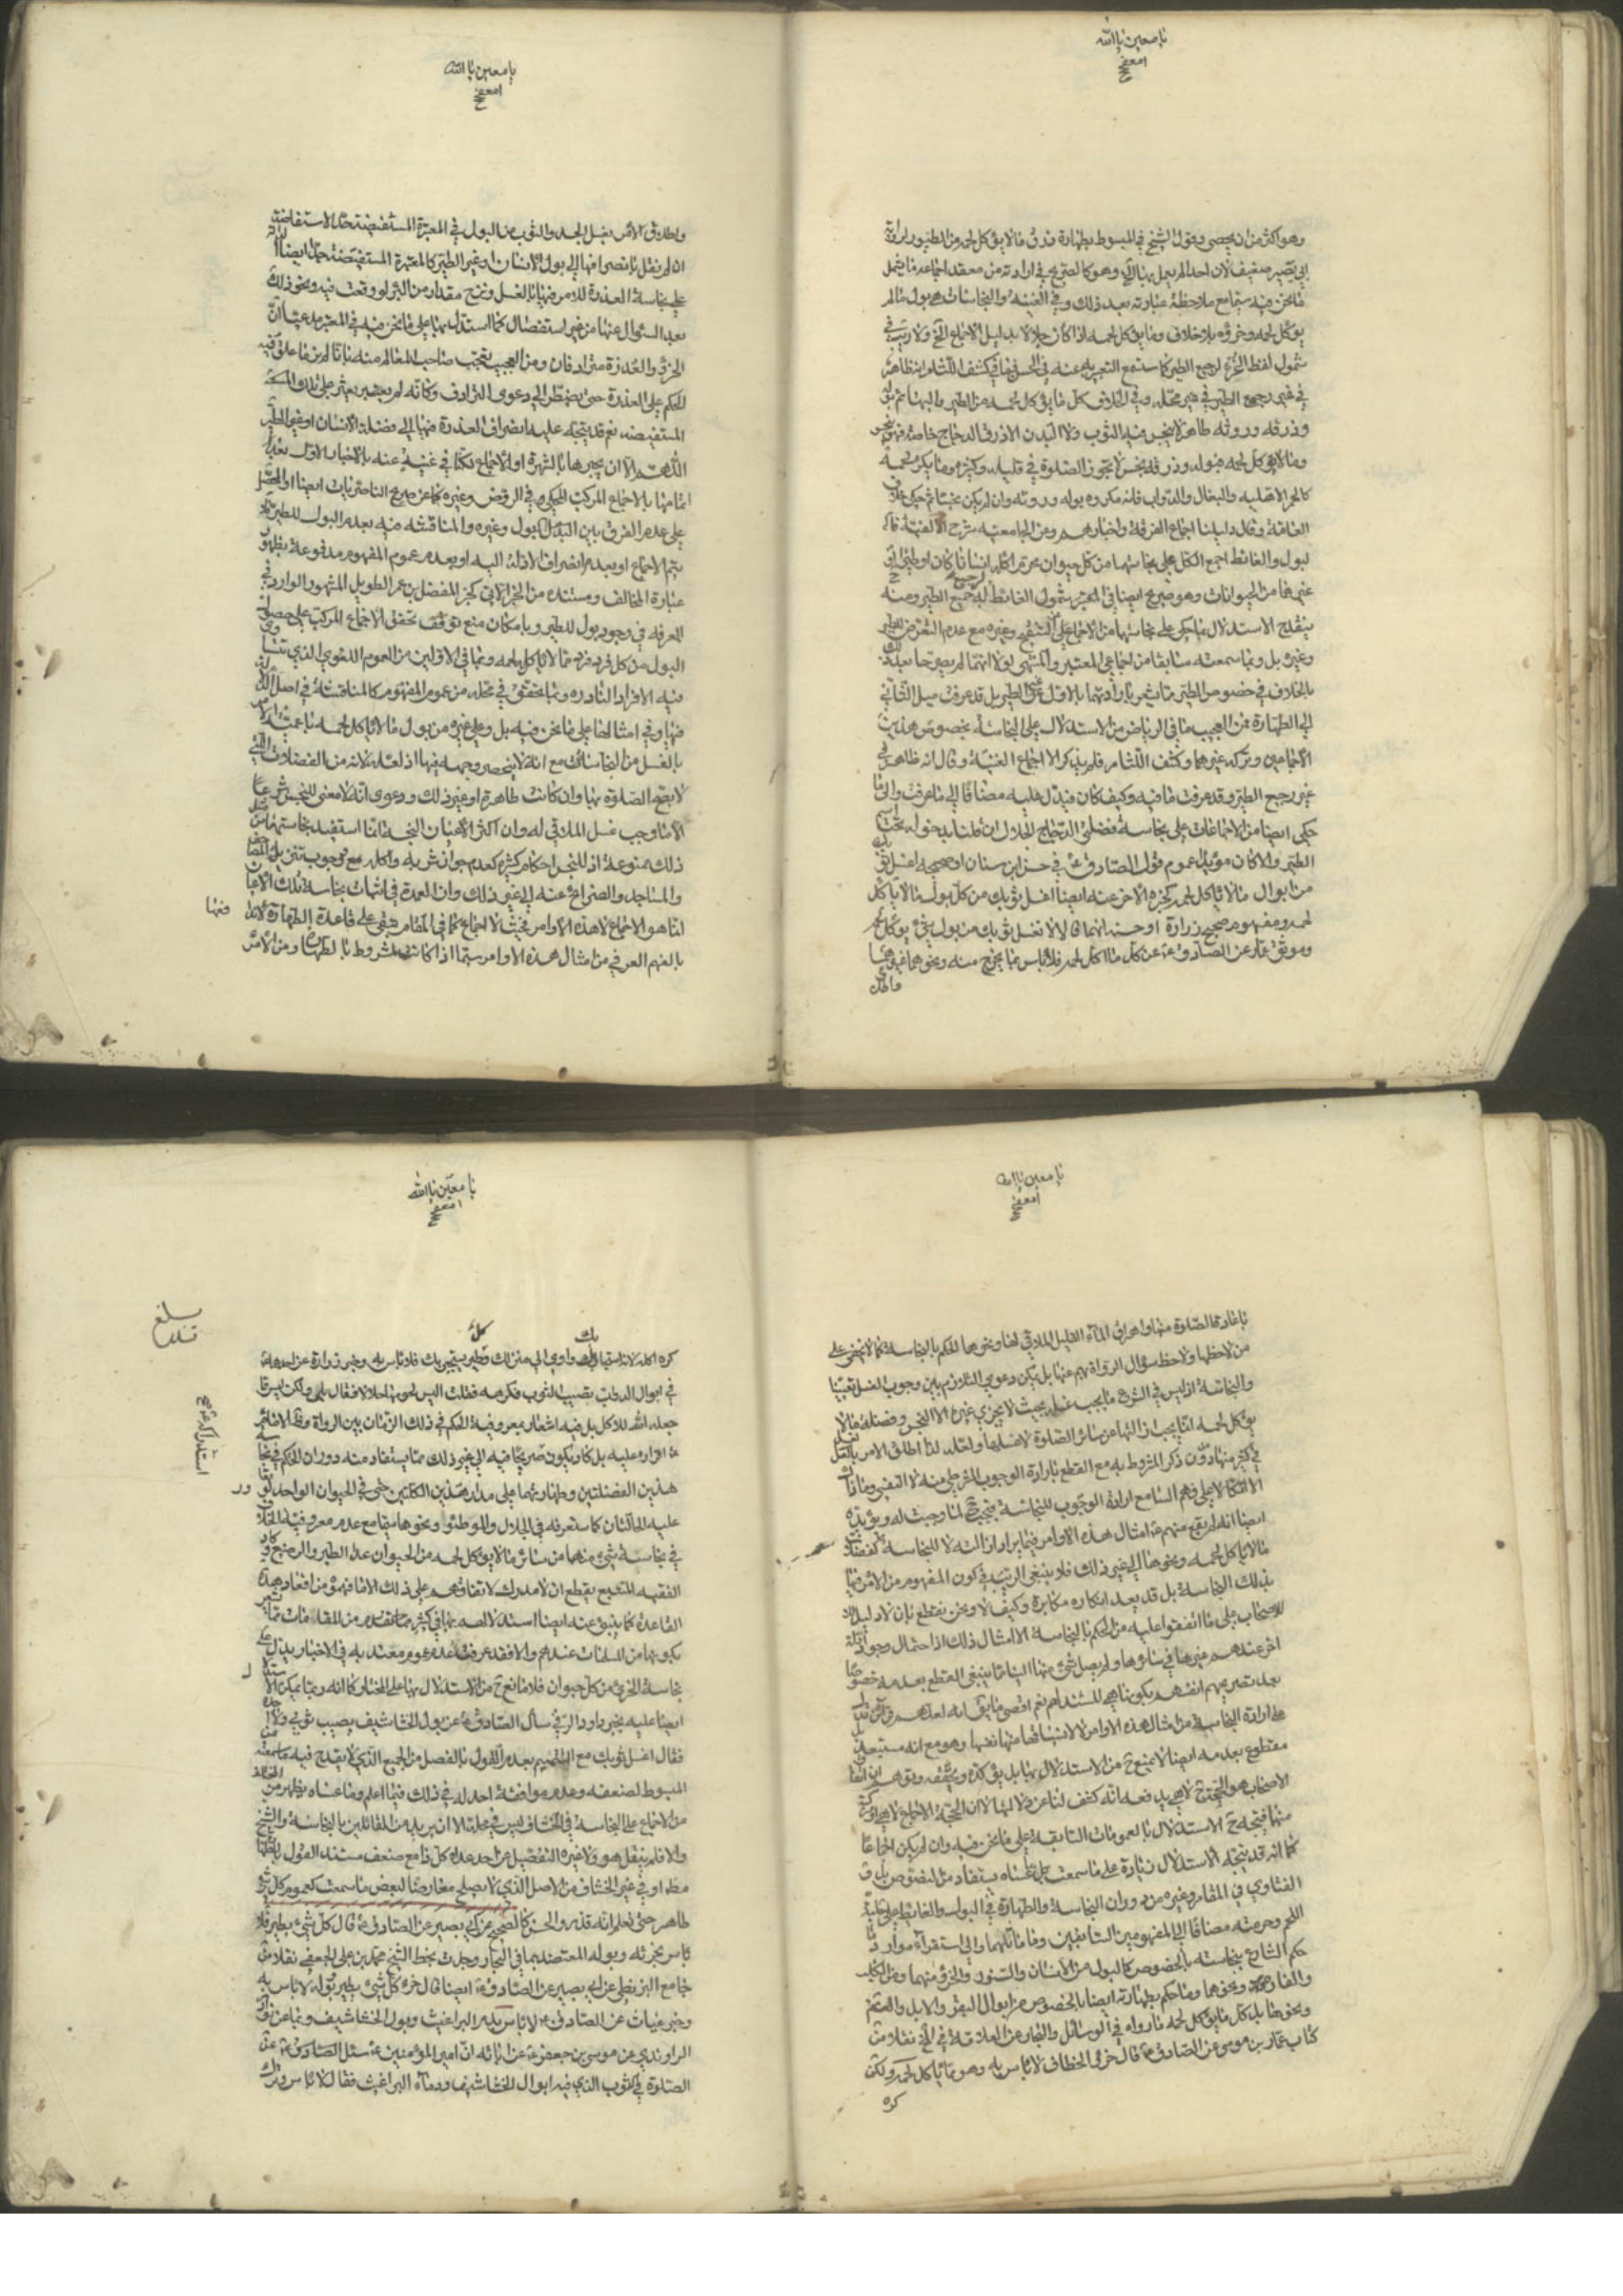 يا معين يا الله
وهو اكثر من ان يحصى وقول الشيخ في المبسوط بطهارة ذرق ما لا يؤكل لحمه من الطيور لرواية
ابي بصير ضعيف لان احدا لم يعمل بها
ما نحن فيه سيما مع ملاحظة عبارته بعد ذلك وفي الغنية والنجاسات هي بول ما لم
يؤكل لحمه وخرؤه بلا خلاف وما يؤكل لحمه اذا كان جلالا بدليل الاجماع الخ ولا ريب في
شمول لفظ الخرء لرجيع الطير كما ستسمع التعبير به عنه في الحسن فما في كشف اللثام انه ظاهر
في غير رجيع الطير في غير محله وفي الخلاف كل ما يؤكل لحمه من الطير والبهائم بوله
وذرقه وروثه طاهر لا ينجس منه الثوب ولا البدن الا ذرق الدجاج خاصة فهو نجس
وما لا يؤكل لحمه فبوله وذرقه نجس لا تجوز الصلوة في قليله وكثيره وما يكره لحمه
كالحمر الاهلية والبغال والدواب فانه مكروه بوله وروثه وان لم يكن نجسا ثم حكى خلاف
العامة وقال دليلنا اجماع الفرقة واخبارهم وعن الجامعية شرح الالفية قال
لبول والغائط اجمع الكل على نجاستهما من كل حيوان محرم اكله انسانا كان او
غيرهما من الحيوانات وهو صريح ايضا في المعتبر بشمول الغائط لرجيع الطير ومنه
ينقدح الاستدلال بما حكي على نجاستهما من الاجماع في التنقيح وغيره مع عدم التعرض للطير
وغيره بل وبما سمعته سابقا من اجماعي المعتبر والمنتهى لولا انهما لم يصرحا بعد ذلك
بالخلاف في خصوص الطير
الى الطهارة فمن العجيب ما في الرياض من الاستدلال على النجاسة بخصوص هذين
الاجماعين وتركه غيرهما وكشف اللثام فلم يذكر الا اجماع الغنية وقال انه ظاهر في
غير رجيع الطير وقد عرفت ما فيه وكيف كان فيدل عليه مضافا الى ما عرفت والى ما
حكي ايضا من الاجماعات على نجاسة فضلتي الدجاج الجلال ان قلنا بدخوله تحت
الطير والا كان مؤيدا عموم قول الصادق ع في حسن ابن سنان او صحيحه اغسل ثوبك
من ابوال ما لا يؤكل لحمه كخبره الاخر عنه ايضا اغسل ثوبك من كل بول ما لا يؤكل
لحمه ومفهوم صحيح زرارة او حسنه انهما قالا لا تغسل ثوبك من بول شيء يؤكل لحمه
وموثق عمار عن الصادق ع كل ما اكل لحمه فلا بأس بما يخرج منه ونحوهما غيرهما
واطلاق
يا معين يا الله
واطلاق الامر بغسل الجسد والثوب من البول في المعتبرة المستفيضة حد الاستفاضة
ان لم نقل بانصرافها الى بول الانسان وغير الطير كالمعتبرة المستفيضة جدا ايضا الدالة
على نجاسة العذرة للامر فيها بالغسل ونزح مقدار من البئر لو وقعت فيه ونحو ذلك
بعد السؤال عنها من غير استفصال كما استدل بها على ما نحن فيه في المعتبر مدعيا ان
الخرء والعذرة مترادفان ومن العجيب تعجب صاحب المعالم منه بانا لم نر ما علق فيه
الحكم على العذرة حتى يضطر الى دعوى الترادف وكأنه لم يعتبر بعثر على تلك
المستفيضة نعم قد يتجه عليه انصراف العذرة فيها الى فضلة الانسان او غير الطير
اللهم الا ان يجبرها بالشهرة او الاجماع لكنا في غنية عنه بالاخبار الاول بعد
اتمامها بالاجماع المركب المحكي في الروض وغيره كما عن صريح الناصريات ايضا او المحصل
على عدم الفرق بين البول وغيره والمناقشة فيه بعدم البول للطير
يتم الاجماع او بعدم انصراف الادلة اليه او بعدم عموم المفهوم مدفوعة بظهور
عبارة المخالف ومستنده من الخبر الاتي كخبر المفضل بن عمر الطويل المشهور الوارد في
المعرفة في وجود بول للطير وبامكان منع توقف تحقق الاجماع المركب على حصول
البول من كل فرد فرد مما لا يؤكل لحمه وبما في الاولين من العموم اللغوي الذي يتساوى
فيه الافراد النادرة وبما تحقق في محله من عموم المفهوم كالمناقشة في اصل الدلالة
فيها وفي امثالها على ما نحن فيه بل وعلى غيره من بول ما لا يؤكل لحمه
بالغسل من النجاسات مع انه لا ينحصر وجهه فيها اذ لعله لانه من الفضلات التي
لا تصح الصلوة بها وان كانت طاهرة او غير ذلك ودعوى انه لا معنى للنجس شرعا
الا ما وجب غسل الملاقي له وان اكثر الاعيان النجسة انما استفيد نجاستها من
ذلك ممنوعة اذ للنجس احكام كثيرة كعدم جواز شربه واكله مع وجوب تنزيل
والمساجد والضرائح عنه الى غير ذلك وان العمدة في اثبات نجاسة تلك الاعيان
انما هو الاجماع لا هذه الاوامر فحيث لا اجماع كما في المقام يبقى على قاعدة الطهارة
بالفهم العرفي من امثال هذه الاوامر سيما اذا كانت لمشروط بالطهارة ومن الامر
يا معين يا الله
باعادة الصلوة منها واهراق الماء القليل الملاقي لها ونحوهما للحكم بالنجاسة كما لا يخفى على
من لاحظها ولاحظ سؤال الرواة لهم عنها بل يمكن دعوى التلازم بين وجوب الغسل تعبدا
والنجاسة اذ ليس في الشرع ما يجب غسله بحيث لا يجزي غيره الا النجس وفضلة ما لا
يؤكل لحمه انما يجب ازالتها عن ساتر الصلوة لا غسلها ولعله لذا اطلق الامر بالغسل
في كثير منها دون ذكر المشروط به مع القطع بارادة الوجوب الشرطي منه لا النفسي
الا اتكالا على فهم السامع ارادة الوجوب للنجاسة فيجب ح لما وجبت له ويؤيده
ايضا انه لم يقع منهم ع امثال هذه الاوامر فيما يراد ازالته لا للنجاسة كفضلات
ما لا يؤكل لحمه ونحوها الى غير ذلك فلا ينبغي الريب في كون المفهوم من الامر فيها
بذلك النجاسة بل قد يعد انكاره مكابرة وكيف لا ونحن نقطع بان لا دليل
للاصحاب على ما اتفقوا عليه من الحكم بالنجاسة الا امثال ذلك اذ احتمال وجود ادلة
اخر عندهم غيرها في سائرها ولم يصل شيء منها الينا مما ينبغي القطع بعدمه خصوصا
بعد تصريحهم انفسهم بكونها هي المستند لهم نعم اقصى ما يقال انه لعلهم
على ارادة النجاسة من امثال هذه الاوامر لا لانسياقها منها نفسها وهو مع انه مستبعد بل
مقطوع بعدمه ايضا لا يمنع ح من الاستدلال بها بل يؤكده ويحققه وتوهم
الاصحاب هو الحجة ح لا هي يدفعه انه كشف لنا عن دلالتها لا ان الحجة الاجماع لا هي
منها فيتجه ح الاستدلال بالعمومات السابقة على ما نحن فيه وان لم يكن اجماعا
كما انه قد يتجه الاستدلال زيادة على ما سمعت بما عساه يستفاد من النصوص بل و
الفتاوي في المقام وغيره من دوران النجاسة والطهارة في البول والغائط على حلية
اللحم وحرمته مضافا الى المفهومين السابقين وما ماثلهما والى استقراء موارد
حكم الشارع بنجاسته بالخصوص كالبول من الانسان والسنور والخرء منهما ومن الكلب
والفارة ونحوها وما حكم بطهارته ايضا بالخصوص من ابوال البقر والابل والغنم
ونحوها بل كل ما يؤكل لحمه ما رواه في الوسائل والبحار عن العلامة في المخ نقلا من
كتاب عمار بن موسى عن الصادق ع قال خرء الخطاف لا باس به وهو مما يؤكل لحمه ولكن
كره
يا معين يا الله
كره اكله لانه استجار بك واوى الى منزلك وكل طير يستجير بك فاجره وخبر زرارة عن احدهما ع
في ابوال الدواب تصيب الثوب فكرهه فقلت اليس لحومها حلالا فقال بلى ولكن ليس مما
جعله الله للاكل بل فيه اشعار بمعروفية الحكم في ذلك الزمان بين الرواة
ع اقراره عليه بل كاد يكون صريحا فيه الى غير ذلك مما يستفاد منه دوران الحكم في نجاسة
هذين الفضلتين وطهارتهما على مدار هذين الكليتين حتى في الحيوان الواحد لو
عليه الحالتان كما ستعرفه في الجلال والموطوء ونحوهما سيما مع عدم معروفية الخلاف
في نجاسة شيء منهما من سائر ما لا يؤكل لحمه من الحيوان عدا الطير والرضيع
الفقيه المتتبع يقطع ان لا مدرك لاتفاقهم على ذلك الا ما فهموه من انعقاد هذه
القاعدة كما ينبئ عنه ايضا استدلالهم بها في كثير مما تقدم من المقامات مما يشعر
بكونها من المسلمات عندهم والا فقد عرفت عدم عموم معتد به في الاخبار يدل على
نجاسة الخرء من كل حيوان فلا مانع ح من الاستدلال بها على المختار كما انه ربما يمكن الاستدلال
ايضا عليه بخبر داود الرقي سأل الصادق ع عن بول الخشاشيف يصيب ثوبي ولا اجده
فقال اغسل ثوبك مع التتميم بعدم القول بالفصل من الجميع الذي لا يقدح فيه
المبسوط لضعفه وعدم موافقة احد له في ذلك فيما اعلم وما عساه يظهر من
من الاجماع على النجاسة في الخشاف ليس في محله الا ان يريد من القائلين بالنجاسة والشيخ
والا فلم ينقل هو ولا غيره التفصيل عن احد عداه كل ذا مع ضعف مستند القول بالطهارة
مطلقا او في غير الخشاف من الاصل الذي لا يصلح معارضا لبعض ما سمعت كعموم كل شيء
طاهر حتى تعلم انه قذر والحسن كالصحيح عن ابي بصير عن الصادق ع قال كل شيء يطير فلا
باس بخرئه وبوله المعتضد بما في البحار وجدت بخط الشيخ محمد بن علي الجبعي نقلا من
جامع البزنطي عن ابي بصير عن الصادق ع ايضا قال خرء كل شيء يطير وبوله لا باس به
وخبر غياث عن الصادق ع لا باس بدم البراغيث وبول الخشاشيف وبما عن نوادر
الراوندي عن موسى بن جعفر ع عن ابائه ان امير المؤمنين ع سئل عن
الصلوة في الثوب الذي فيه ابوال الخشاشيف ودماء البراغيث فقال لا باس